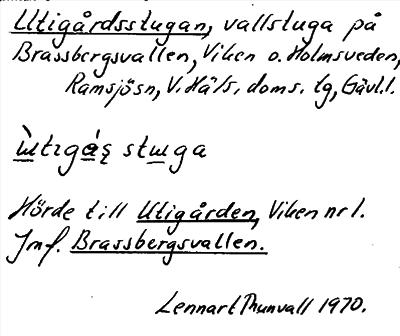 Utigårdsstugan, vallstuga på
Brassbergsvallen, Viken o. Holmsveden,
Ramsjösn, V. Häls. doms. lg, Gävl.l.
ɯ̀tıgáꞩ stɯga
Hörde till Utigården, Viken nr 1.
Jmf. Brassbergsvallen.
Lennart Thunvall 1970.